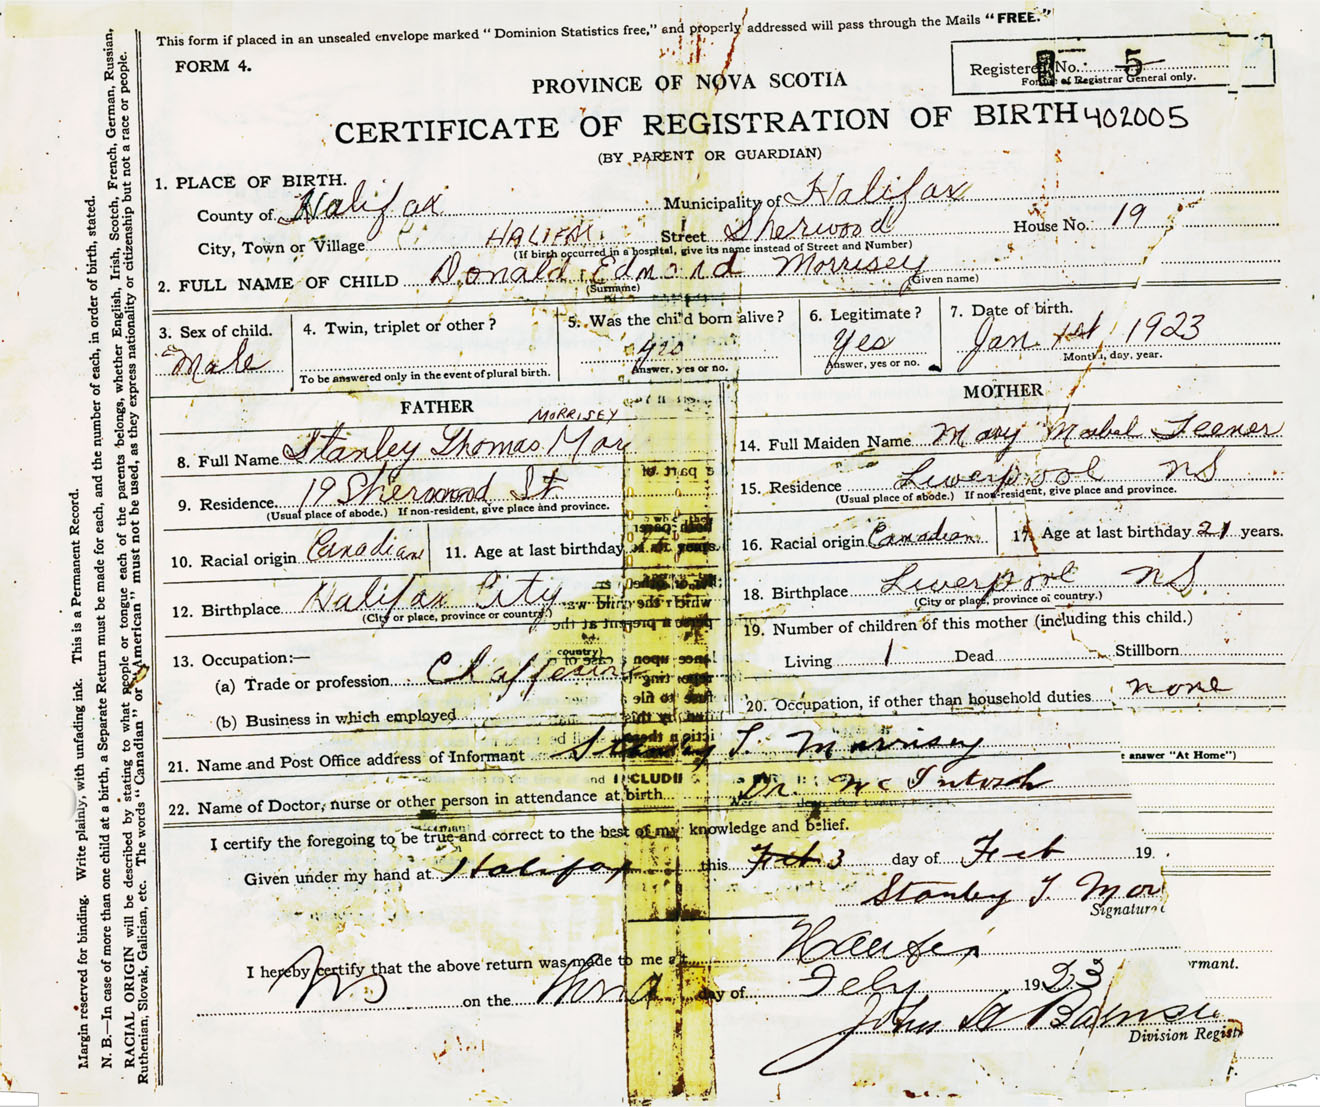 This form if placed in an unsealed envelope marked "Dominion Statistics free," and properly addressed will pass through the Mails "FREE."
FORM 4.
Registered No. 5
For use of Registrar General only.
PROVINCE OF NOVA SCOTIA
CERTIFICATE OF REGISTRATION OF BIRTH 402005
(BY PARENT OR GUARDIAN)
1. PLACE OF BIRTH.
County of Halifax Municipality of Halifax
City, Town or Village HALIFAX Street Sherwood House No. 19
(If birth occurred in a hospital, give its name instead of Street and Number)
2. FULL NAME OF CHILD Donald Edmond Morrisey
(Surname) (Given name)
3. Sex of child. 4. Twin, triplet or other? 5. Was the child born alive? 6. Legitimate? 7. Date of birth.
Male yes Yes Jan 1st 1923
To be answered only in the event of plural birth. Answer, yes or no. Answer, yes or no. Month, day, year.
FATHER
MORRISEY
8. Full Name Stanley Thomas Mor
9. Residence 19 Sherwood St
(Usual place of abode.) If non-resident, give place and province.
10. Racial origin Canadian 11. Age at last birthday
12. Birthplace Halifax City
(City or place, province or country.)
13. Occupation:—
(a) Trade or profession
(b) Business in which employed
MOTHER
14. Full Maiden Name Mary Mabel Teener
15. Residence Liverpool NS
(Usual place of abode.) If non-resident, give place and province.
16. Racial origin Canadian 17. Age at last birthday 21 years.
18. Birthplace Liverpool NS
(City or place, province or country.)
19. Number of children of this mother (including this child.)
Living 1 Dead Stillborn
20. Occupation, if other than household duties none
21. Name and Post Office address of Informant Stanley T. Morrisey
answer "At Home")
and INCLUDI
22. Name of Doctor, nurse or other person in attendance at birth Dr. McIntosh
I certify the foregoing to be true and correct to the best of my knowledge and belief.
Given under my hand at Halifax this Feb 3 day of Feb 19
Stanley T. Mor
Signature
rmant.
I hereby certify that the above return was made to me at Halifax
on the day of Feby 1923
John A
Division Regist
Margin reserved for binding. Write plainly, with unfading ink. This is a Permanent Record.
N. B.—In case of more than one child at a birth, a Separate Return must be made for each, and the number of each, in order of birth, stated.
RACIAL ORIGIN will be described by stating to what people or tongue each of the parents belongs, whether English, Irish, Scotch, French, German, Russian,
Ruthenian, Slovak, Galician, etc. The words "Canadian" or "American" must not be used, as they express nationality or citizenship but not a race or people.